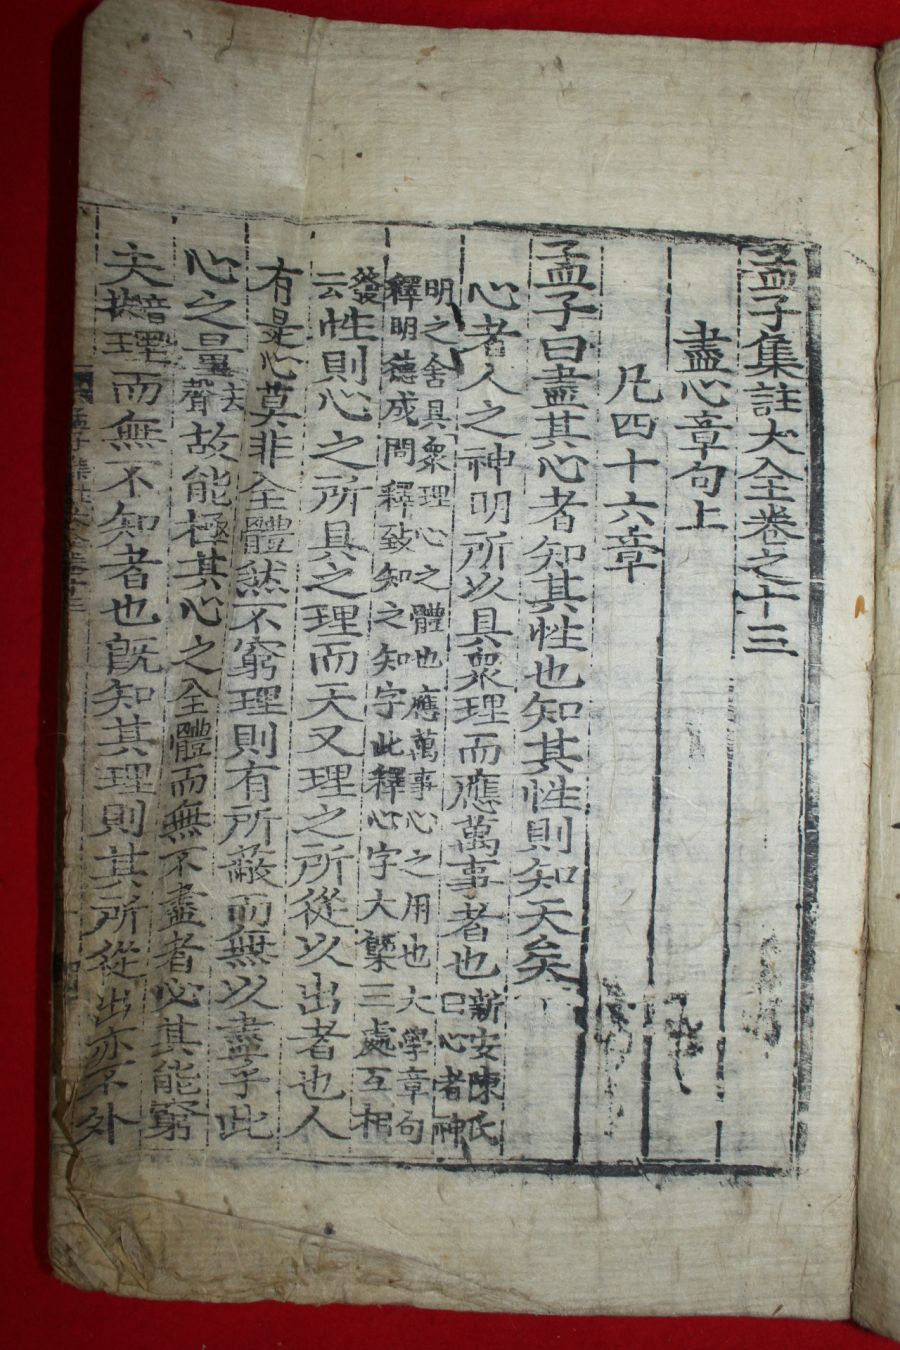 孟子集註大全卷之十三
盡心章句上
凡四十六章
孟子曰盡其心者知其性也知其性則知天矣
心者人之神明所以具衆理而應萬事者也新安陳氏曰心者神
明之舍具衆理心之體也應萬事心之用也大學章句
釋明德或問釋致知之知字此釋心字大槩三處互相
發云性則心之所具之理而天又理之所從以出者也人
有是心莫非全體然不窮理則有所蔽而無以盡乎此
心之量去聲故能極其心之全體而無不盡者必其能窮
夫音扶理而無不知者也旣知其理則其所從出亦不外
孟子集註大全卷十三